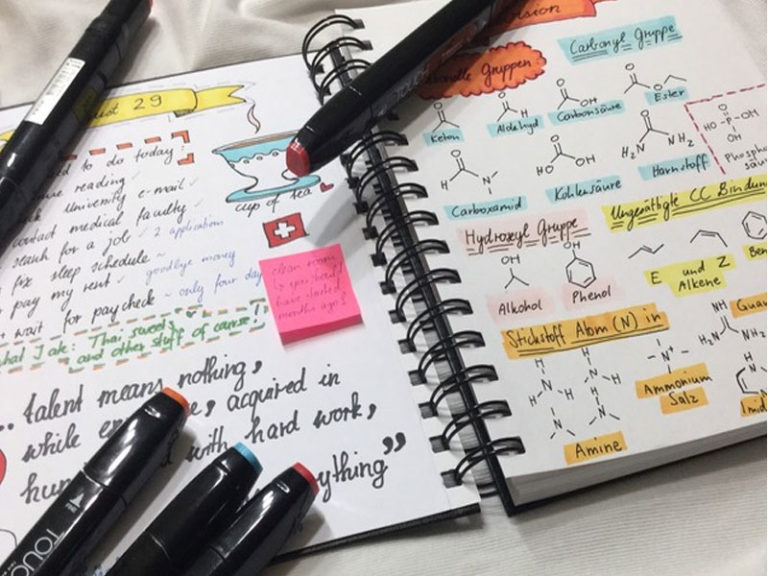 ust 29
to do today:
reading
University e-mail
contact medical faculty
search for a job 2 applications
fix sleep schedule ~
pay my rent goodbye money
+ wait for paycheck ~ only four day
what I ate: Thai, sweets
and other stuff of course!
cup of tea
clean room
↳ you should
have started
months ago!
„talent means nothing,
while e, acquired in
hum with hard work,
ything”
TOUC
sion
Gruppen:
Carbonyl Gruppe
Keton
Aldehyd
Carbonsäure
Ester
OH
H
N
H₂N
NH₂
HO
OH
HO-P-OH
OH
Carboxamid
Kohlensäure
Harnstoff
Phospho
säu
Hydroxyl Gruppe
Ungesättigte CC Bindun
OH
OH
Alkohol
Phenol
E und Z
Alkene
Ben
Stickstoff Atom (N) in
H
N
H
H
N
H
-N⁺-
NH
H₂N
NH₂
Amine
Ammonium
Salz
Guan
Imid